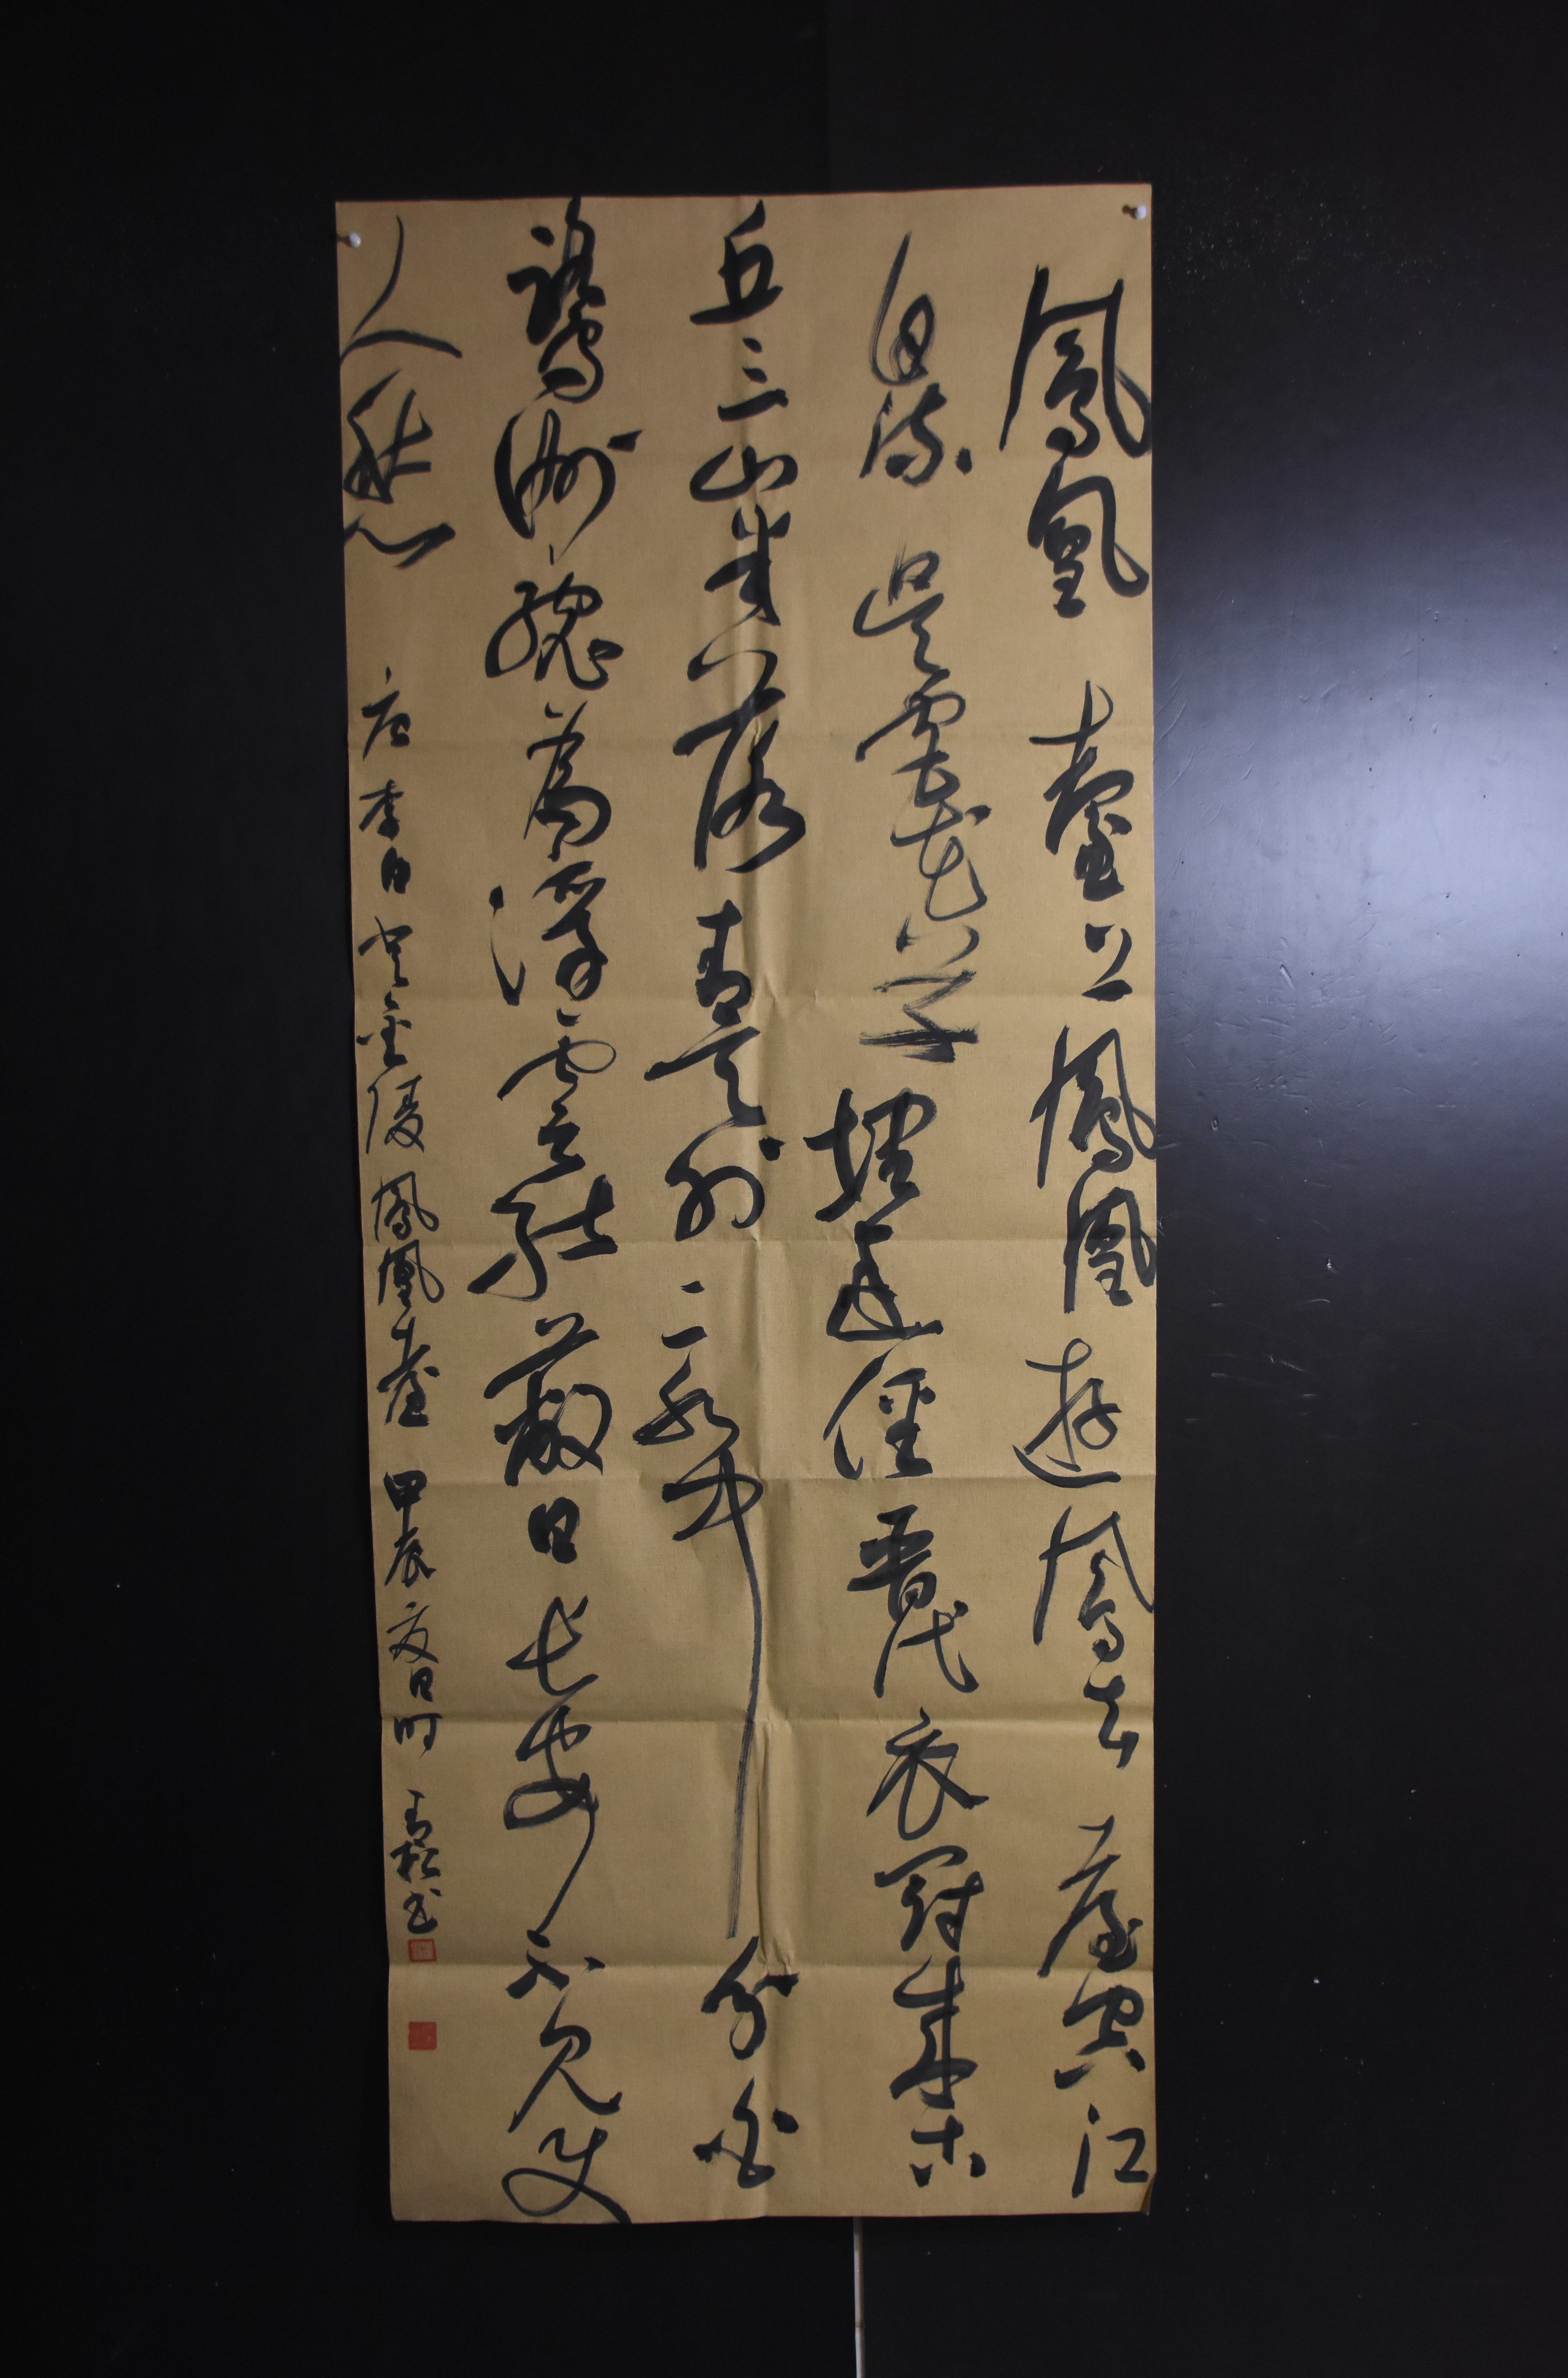 鳳凰臺上鳳凰遊鳳去臺空江
自流吳宮花草埋幽徑晉代衣冠成古
丘三山半落青天外二水中分白
鷺洲總為浮雲能蔽日長安不見使
人愁 唐李白登金陵鳳凰臺 甲辰夏日时 青松书